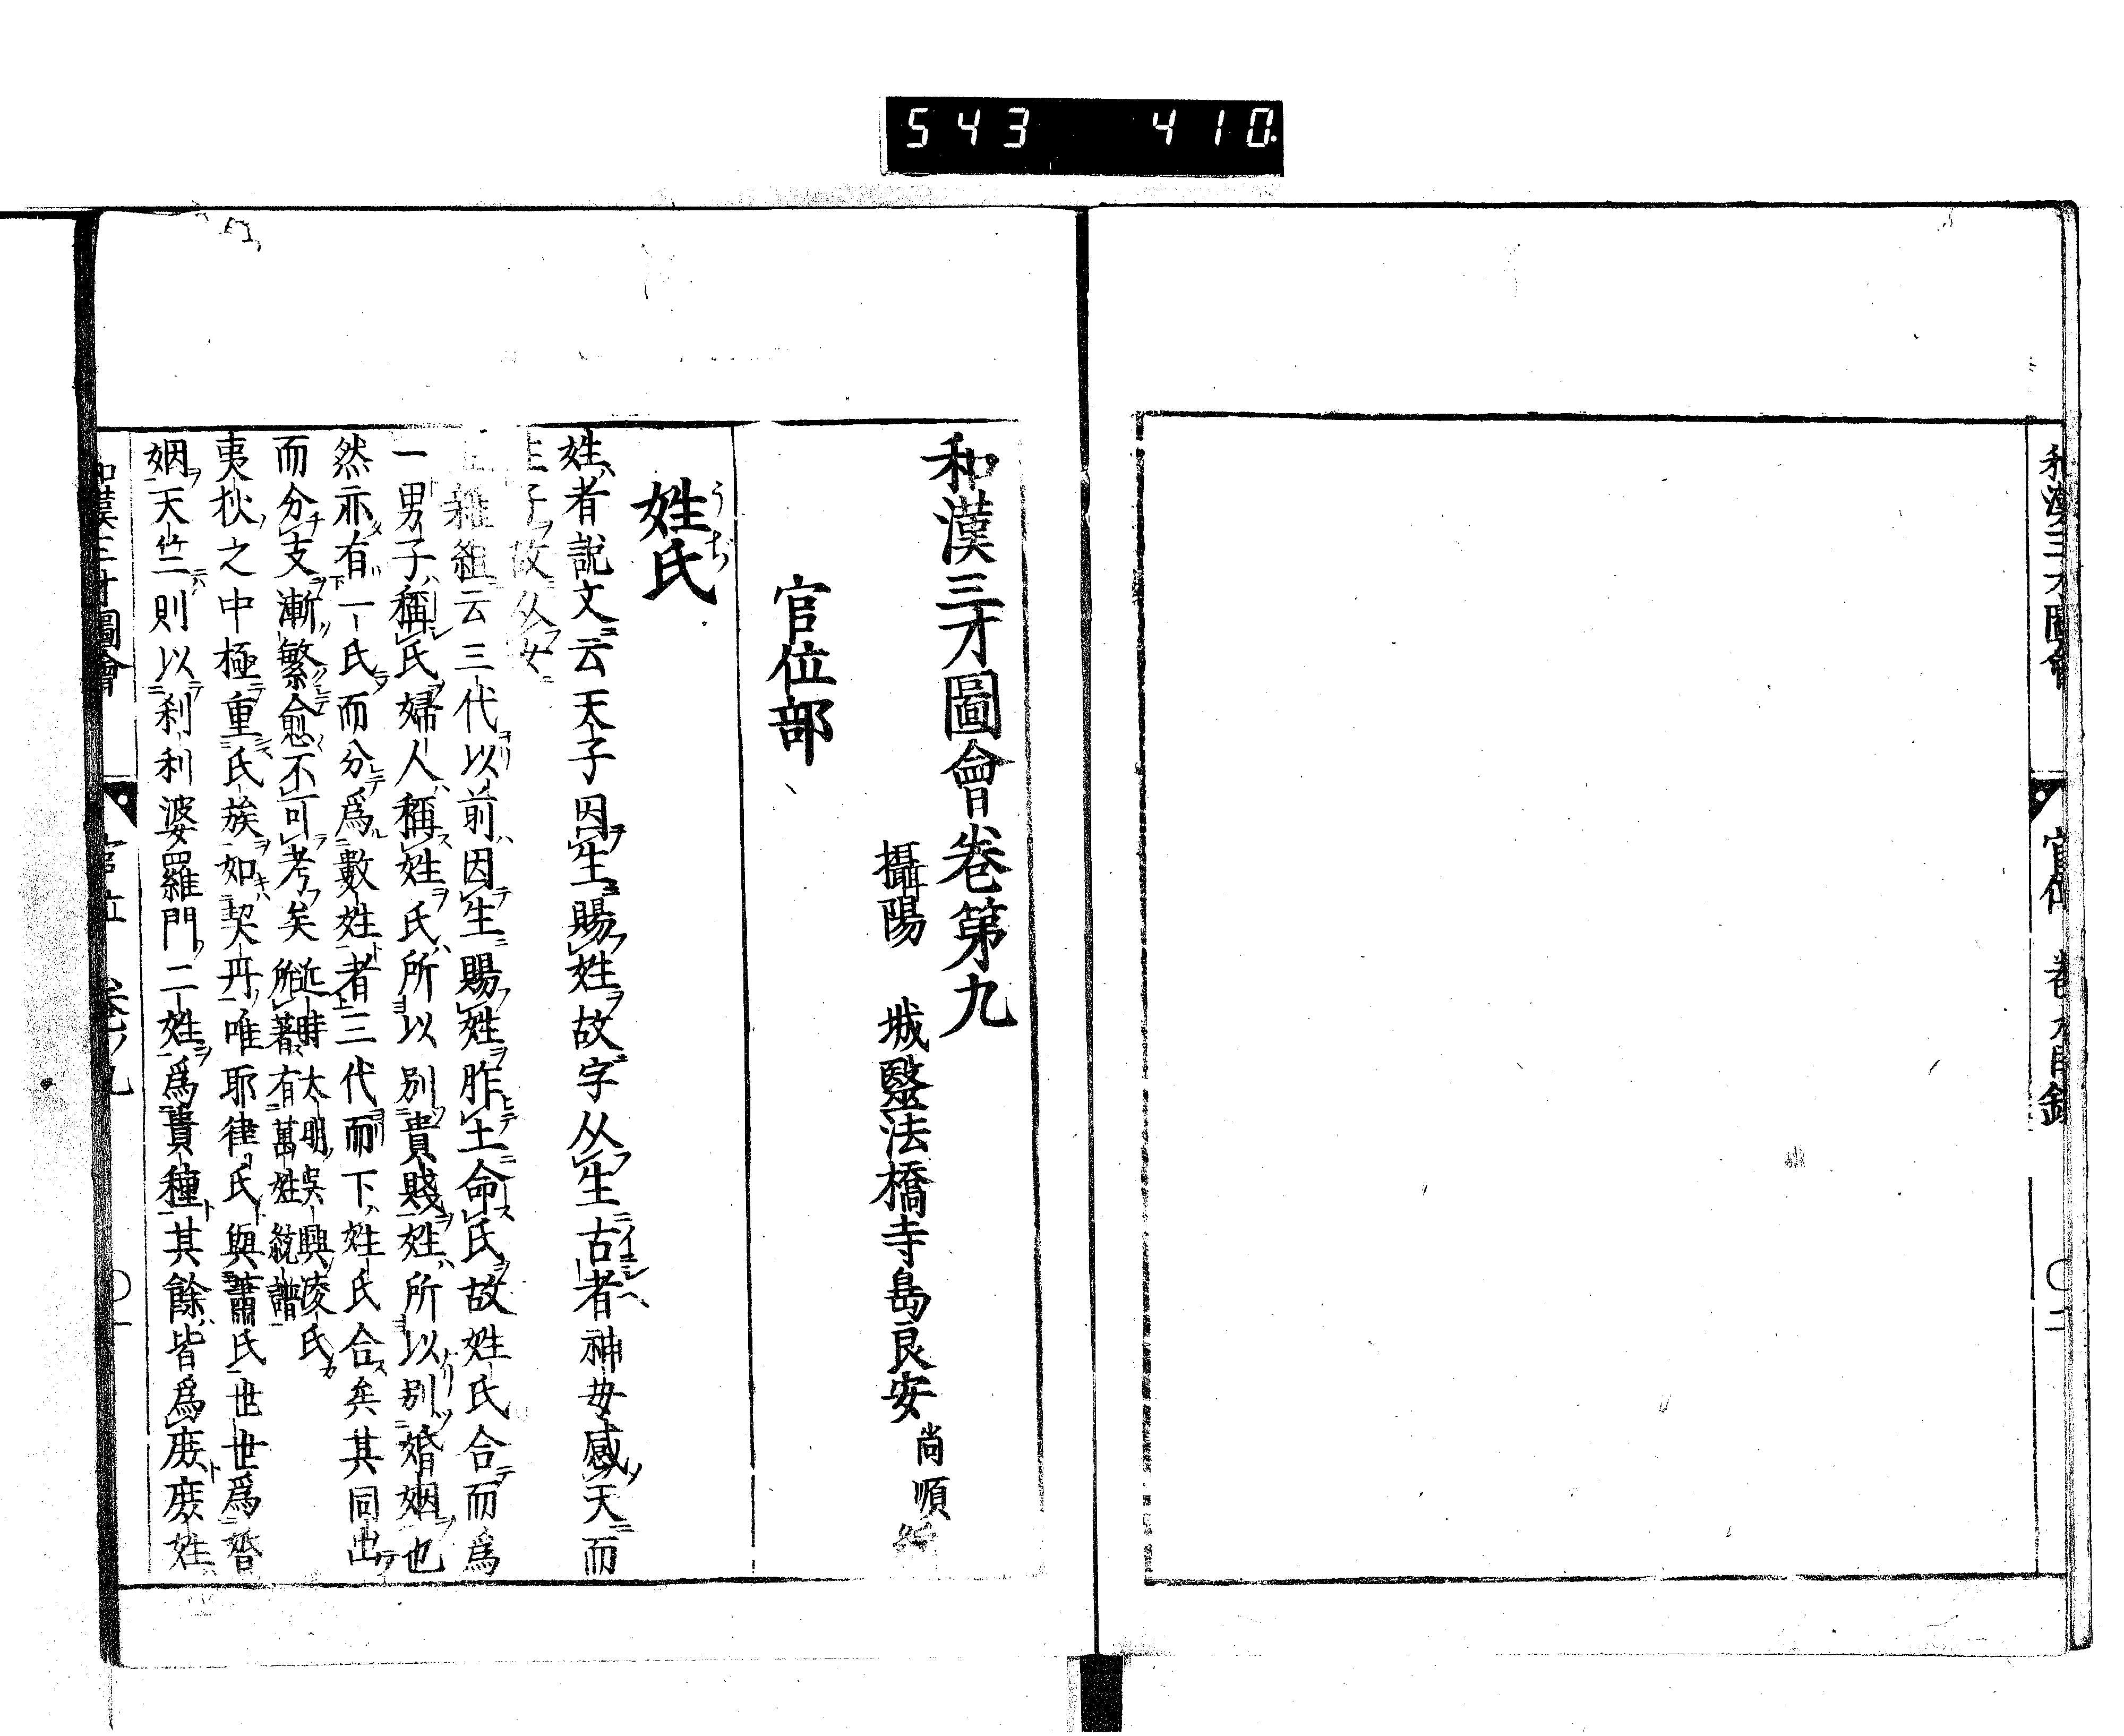 543 410
和漢三才圖會
官位 卷九目録
和漢三才圖會卷第九
攝陽 城醫法橋寺島良安尚順編
官位部
姓氏
うぢ
姓者說文云天子因生賜姓故字从生古者神母感天而
生子故从女
雜組云三代以前因生賜姓胙土命氏故姓氏合而爲
一男子稱氏婦人稱姓氏所以別貴賤姓所以別婚姻也
然亦有一氏而分爲數姓者三代而下姓氏合矣其同出
而分支漸繁愈不可考矣近時太明吳興凌氏
所著有萬姓統譜
夷狄之中極重氏族如契丹唯耶律氏與蕭氏世世爲婚
姻天竺則以刹利婆羅門二姓爲貴種其餘皆爲庶庶姓
和漢三才圖會
官位 卷ノ九
〇一